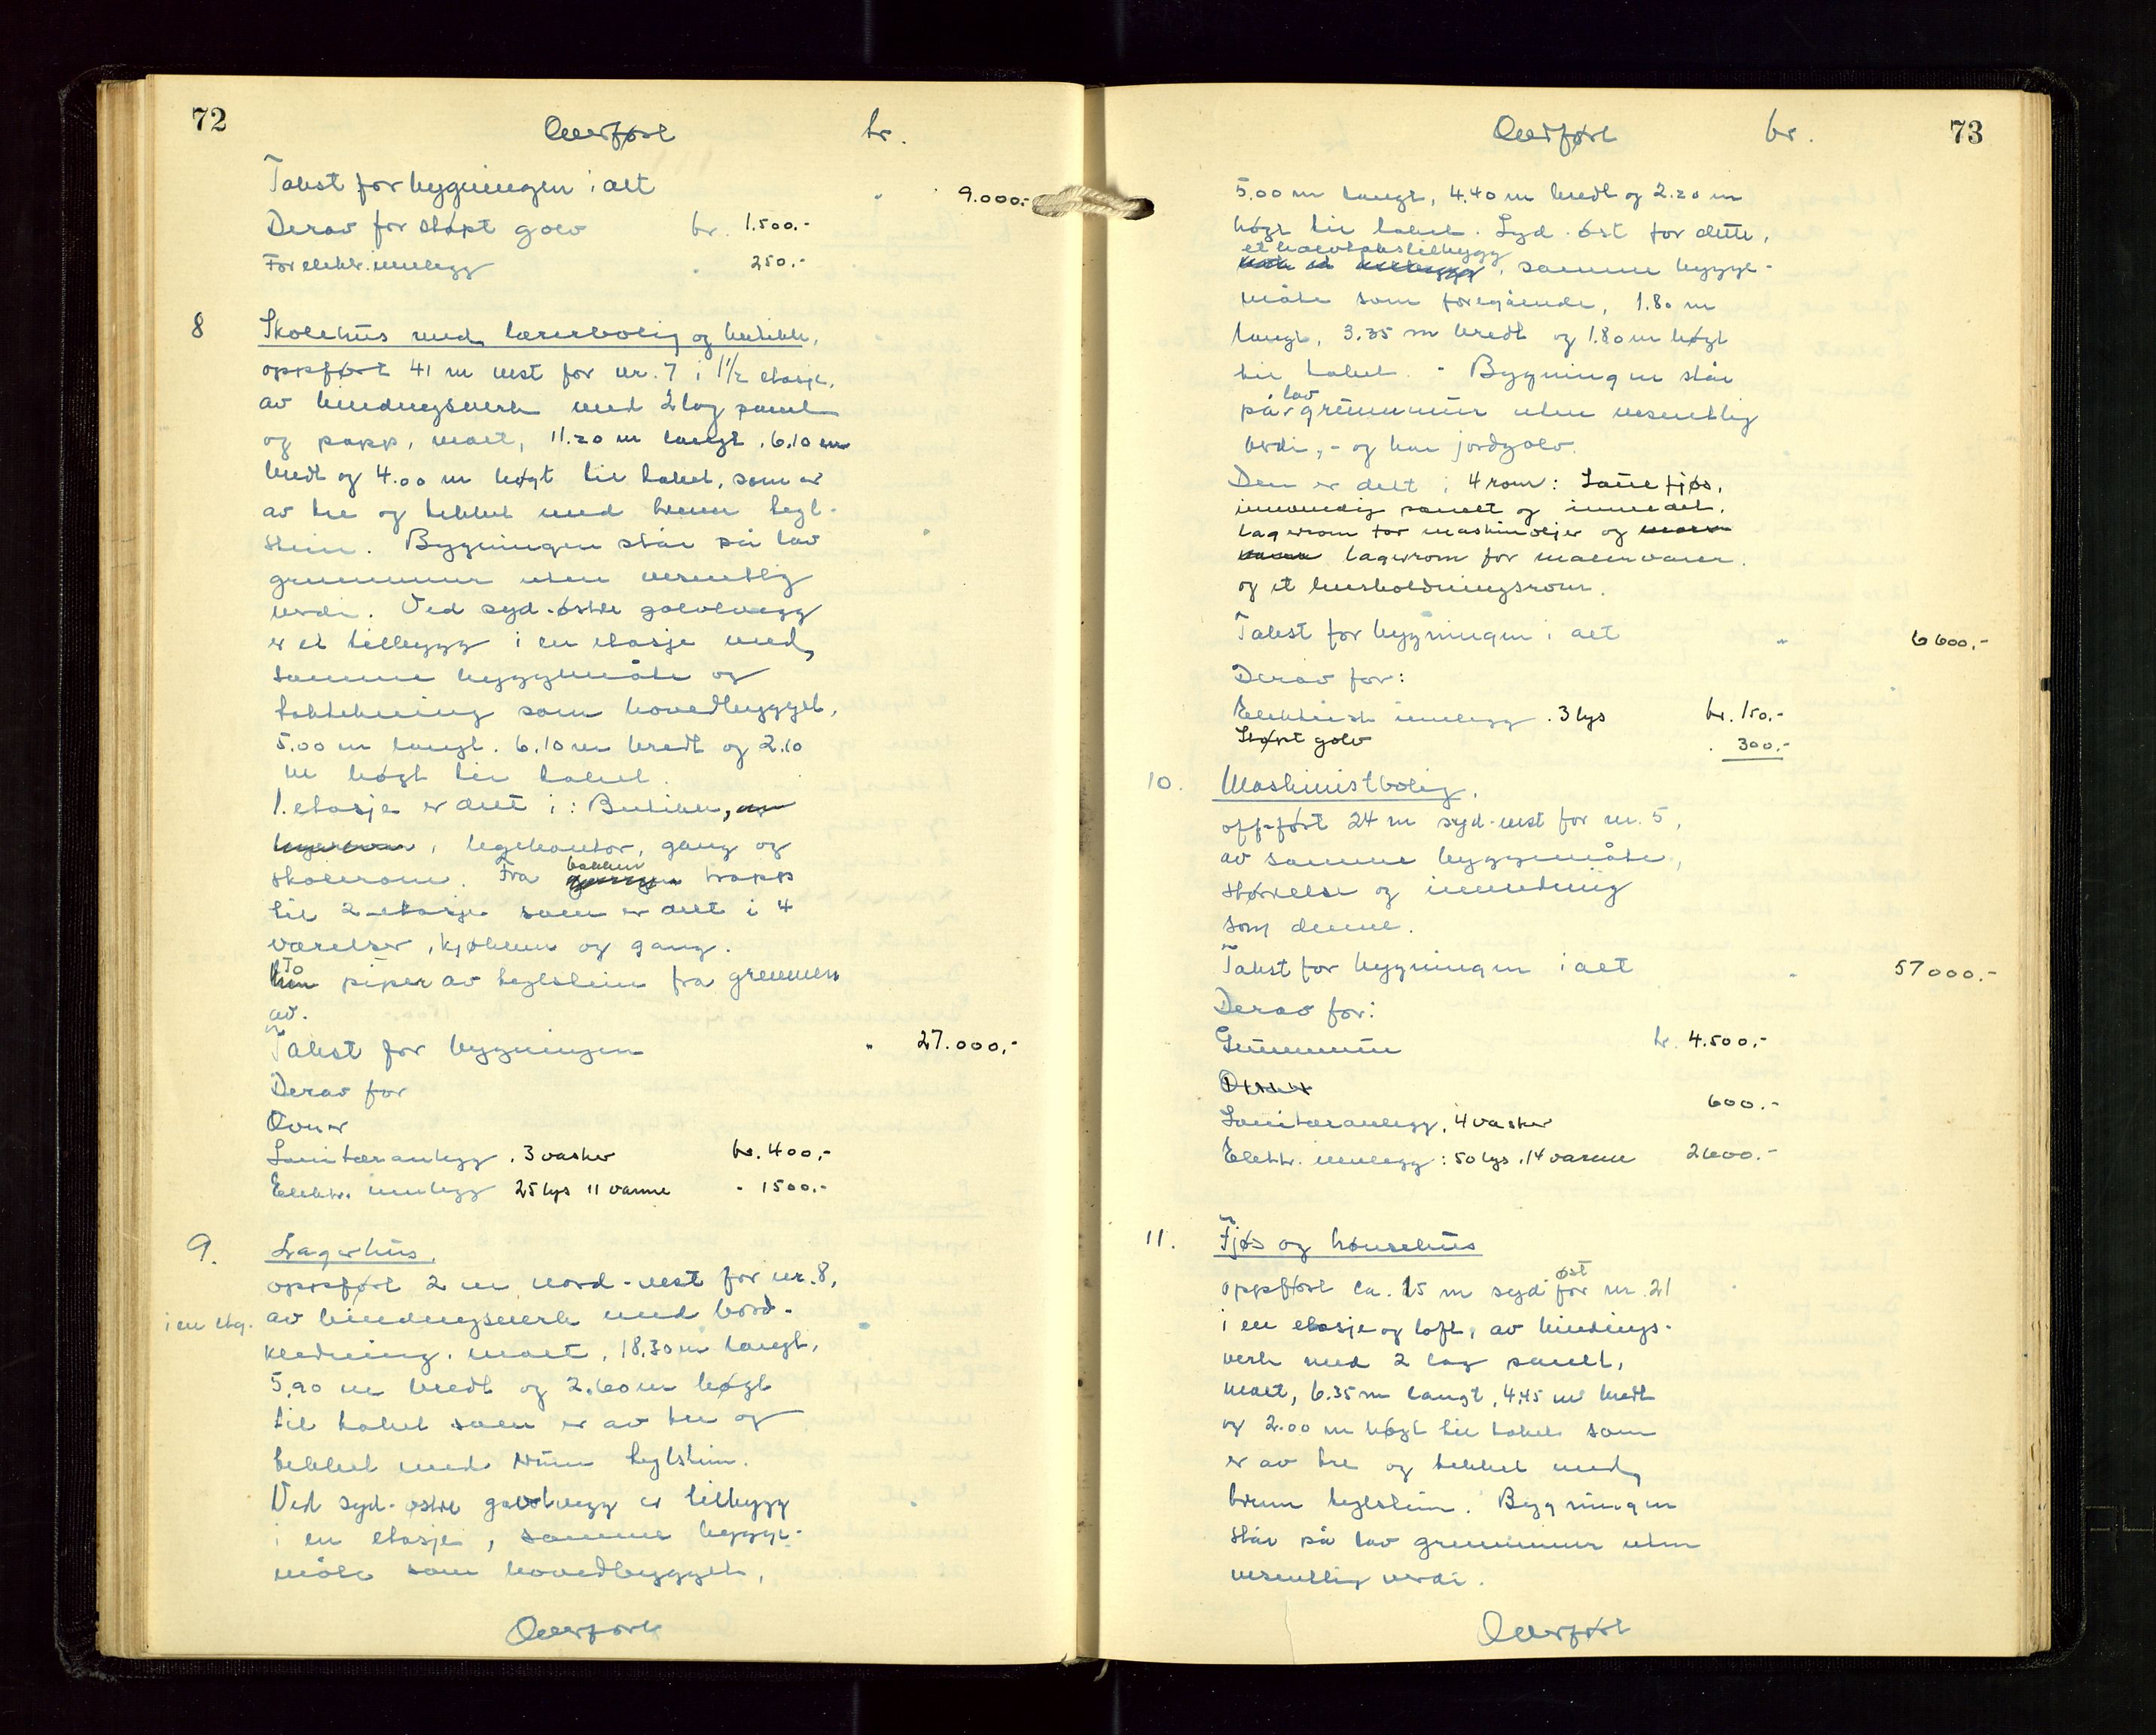 72
Overført kr.
Takst for bygningen i alt " 9.000.-
Derav for støpt golv kr. 1.500.-
For elektr. innlegg . 250.-
8 Skolehus med lærerbolig og butikk,
oppført 41 m vest for nr. 7 i 1 1/2 etasje,
av bindingsverk med 2 lag panel
og papp, malt, 11.20 m langt, 6.10 m
bredt og 4.00 m høgt til taket, som er
av tre og tekket med brenn tegl-
stein. Bygningen står på lav
grunnmur uten vesentlig
verdi. Ved syd-østre golvvegg
er et tilbygg i en etasje med
samme byggemåte og
taktekning som hovedbygget,
5.00 m langt, 6.10 m bredt og 2.10
m høgt til taket.
1. etasje er delt i: Butikk,
, legekontor, gang og
skolerom. Fra bakken trapp
til 2 etasje som er delt i 4
værelser, kjøkken og gang.
To piper av teglstein fra grunnen
av.
Takst for bygningen " 27.000,-
Derav for
Ovner
Sanitæranlegg, 3 vasker kr. 400,-
Elektr. innlegg 25 lys 11 varme - 1500.-
9. Lagerhus,
oppført 2 m nord-vest for nr. 8,
i en etg. av bindingsverk med bord-
kledning, malt, 18.30 m langt,
5.90 m bredt og 2.60 m høgt
til taket som er av tre og
tekket med brenn teglstein.
Ved syd-østre golvvegg er tilbygg
i en etasje, samme bygge-
måte som hovedbygget,
Overført
73
Overført kr.
5.00 m langt, 4.40 m bredt og 2.20 m
høgt til taket. Syd-øst for dette,
et halvtakstilbygg, samme bygge-
måte som foregående, 1.80 m
langt, 3.35 m bredt og 1.80 m høgt
til taket. - Bygningen står
på lav grunnmur uten vesentlig
verdi, - og har jordgolv.
Den er delt i 4 rom: Sauefjøs,
innvendig panelt og innredet,
lagerrom for maskinoljer og
lagerrom for malervarer
og et husholdningsrom.
Takst for bygningen i alt " 6600.-
Derav for:
Elektrisk innlegg . 3 lys kr. 150.-
Støpt golv . 300.-
10. Maskinistbolig,
oppført 24 m syd-vest for nr. 5,
av samme byggemåte,
størrelse og innredning
som denne.
Takst for bygningen i alt " 57000.-
Derav for:
Grunnmur kr. 4.500.-
Ovner
600.-
Sanitæranlegg, 4 vasker
Elektr. innlegg: 50 lys, 14 varme 2600.-
11. Fjøs og hønsehus
oppført ca. 15 m syd øst for nr. 21
i en etasje og loft, av bindings-
verk med 2 lag panelt,
malt, 6.35 m langt, 4.45 m bredt
og 2.00 m høgt til taket som
er av tre og tekket med
brenn teglstein. Bygningen
står på lav grunnmur uten
vesentlig verdi.
Overført